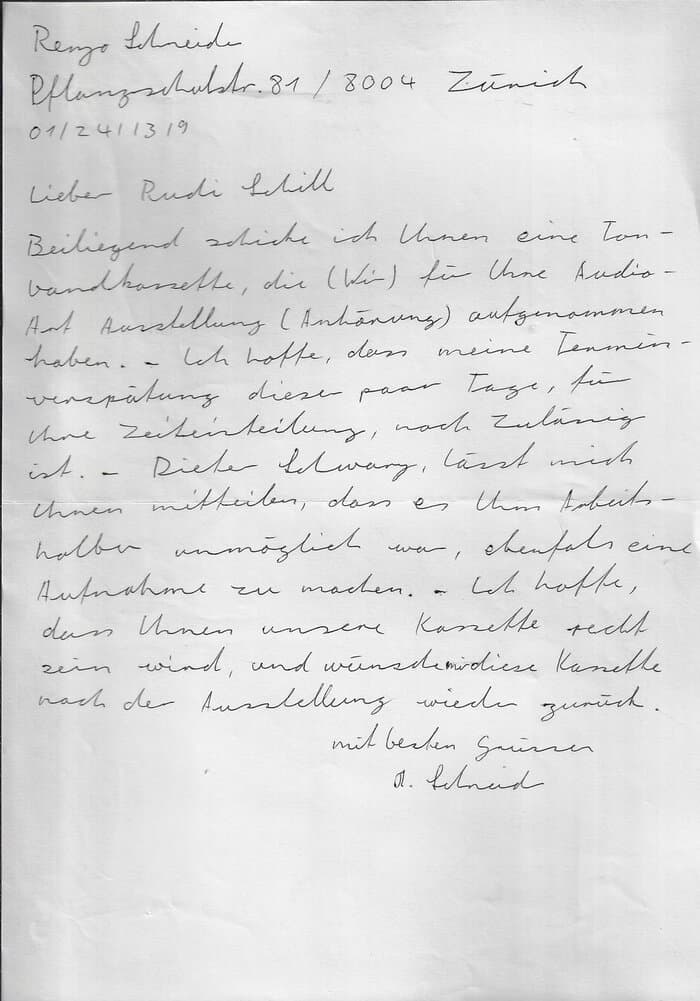 Renzo Schneider
Pflanzschulstr. 81 / 8004 Zürich
01/2411319
Lieber Rudi Schill
Beiliegend schicke ich Ihnen eine Ton-
bandkassette, die (Wir) für Ihre Audio-
Art Ausstellung (Anhörung) aufgenommen
haben. – Ich hoffe, dass meine Termin-
verspätung dieser paar Tage, für
ihre Zeiteinteilung, noch zulässig
ist. – Dieter Schwarz, lässt mich
Ihnen mitteilen, dass es Ihm Arbeits-
halber unmöglich war, ebenfals eine
Aufnahme zu machen. – Ich hoffe,
dass Ihnen unsere Kassette recht
sein wird, und wünsche mir diese Kassette
nach der Ausstellung wieder zurück.
mit besten Grüssen
R. Schneid